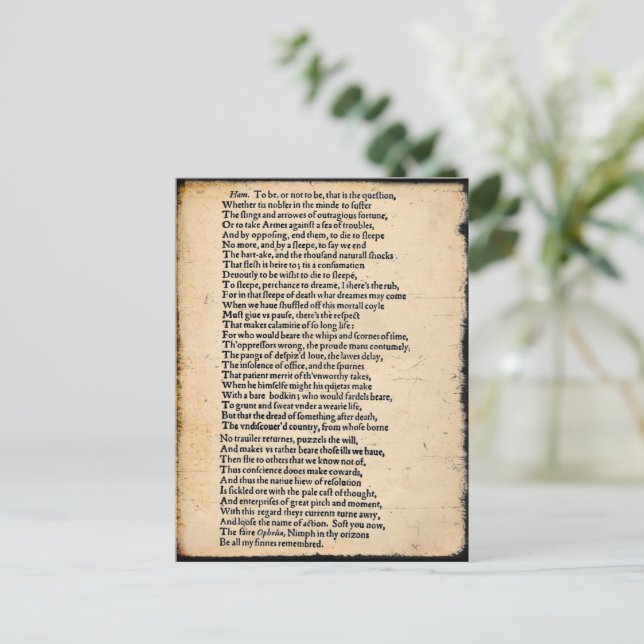 Ham. To be, or not to be, that is the queſtion,
Whether tis nobler in the minde to ſuffer
The ſlings and arrowes of outragious fortune,
Or to take Armes againſt a ſea of troubles,
And by oppoſing, end them, to die to ſleepe
No more, and by a ſleepe, to ſay we end
The hart-ake, and the thouſand naturall ſhocks
That fleſh is heire to; tis a conſumation
Deuoutly to be wiſht to die to ſleepe,
To ſleepe, perchance to dreame, I there's the rub,
For in that ſleepe of death what dreames may come
When we haue ſhuffled off this mortall coyle
Muſt giue vs pauſe, there's the reſpect
That makes calamitie of ſo long life:
For who would beare the whips and ſcornes of time,
Th'oppreſſors wrong, the proude mans contumely,
The pangs of deſpiz'd loue, the lawes delay,
The inſolence of office, and the ſpurnes
That patient merrit of th'vnworthy takes,
When he himſelfe might his quietas make
With a bare bodkin; who would fardels beare,
To grunt and ſweat vnder a wearie life,
But that the dread of ſomething after death,
The vndiſcouer'd country, from whoſe borne
No trauiler returnes, puzzels the will,
And makes vs rather beare thoſe ills we haue,
Then flie to others that we know not of.
Thus conſcience dooes make cowards,
And thus the natiue hiew of reſolution
Is ſickled ore with the pale caſt of thought,
And enterpriſes of great pitch and moment,
With this regard theyr currents turne awry,
And looſe the name of action. Soft you now,
The faire Ophelia, Nimph in thy orizons
Be all my ſinnes remembred.